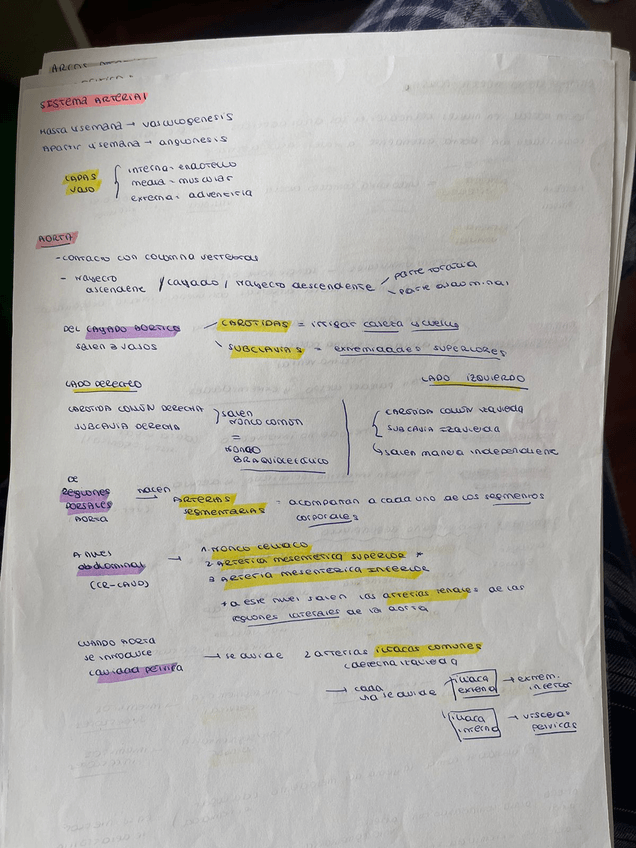 SISTEMA ARTERIAL
Hasta 4 semana → vasculogenesis
A partir 4 semana → angionesis
CAPAS VASO
interna = endotelio
media = muscular
externa = adventicia
AORTA
- contacto con columna vertebral
- trayecto ascendente / cayado / trayecto descendente
parte toracica
parte abdominal
DEL CAYADO AORTICO salen 3 vasos
CAROTIDAS = irrigar cabeza y cuello
SUBCLAVIAS = extremidades superiores
LADO DERECHO
LADO IZQUIERDO
CAROTIDA COMÚN DERECHA
SUBCLAVIA DERECHA
salen tronco común
=
TRONCO BRAQUIOCEFALICO
CAROTIDA COMÚN IZQUIERDA
SUBCAVIA IZQUIERDA
↳ salen manera independiente
DE REGIONES DORSALES AORTA
nacen
ARTERIAS SEGMENTARIAS
= acompañan a cada uno de los segmentos corporales
A nivel abdominal (CR-CAUD) →
1. TRONCO CELIACO
2 ARTERIA MESENTERICA SUPERIOR *
3 ARTERIA MESENTERICA INFERIOR
* a este nivel salen las arterias renales de las regiones laterales de la aorta
CUANDO AORTA se introduce cavidad pelvica
→ se divide 2 arterias iliacas comunes
(derecha izquierda)
→ cada una se divide
iliaca externa → extrem. inferior
iliaca interna → visceras pelvicas